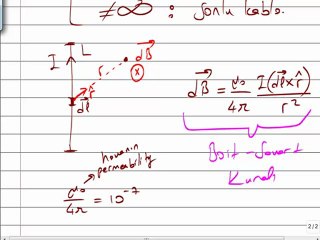 ≠∞ : Sonlu kablo.
I L
r dB⃗
r̂ ⊗
dl⃗
dB⃗ = μ₀/4π I(dl⃗×r̂)/r²
Boit-Savart
Kuralı
havanın
permeability
μ₀/4π = 10⁻⁷
2/2